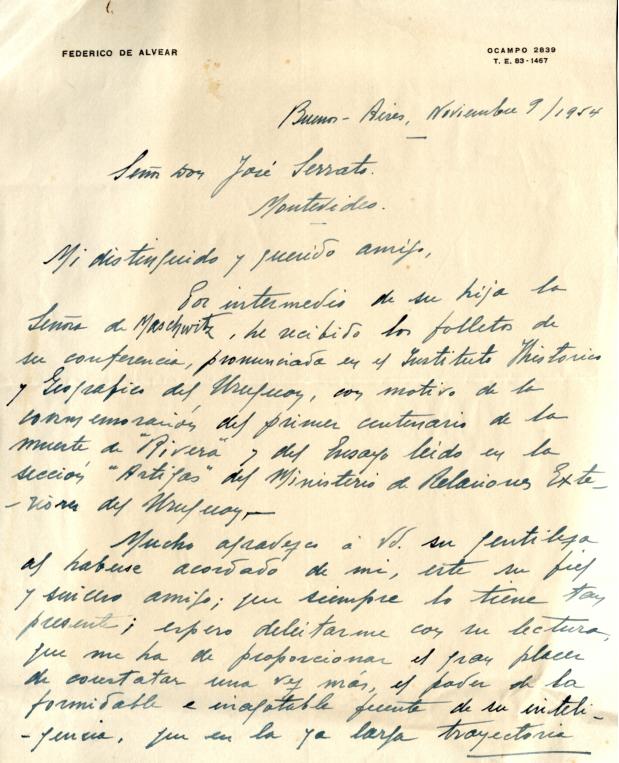 FEDERICO DE ALVEAR
OCAMPO 2839
T. E. 83-1467
Buenos-Aires, Noviembre 9/1954
Señor Don José Serrato.
Montevideo.
Mi distinguido y querido amigo,
Por intermedio de su hija la
Señora de Maschwitz, he recibido los folletos de
su conferencia, pronunciada en el Instituto Historico
y Geografico del Uruguay, con motivo de la
conmemoración del primer centenario de la
muerte de "Rivera" y del Ensayo leído en la
sección "Artigas" del Ministerio de Relaciones Exte-
-riores del Uruguay.
Mucho agradezco á Vd. su gentileza
al haberse acordado de mi, este su fiel
y sincero amigo; que siempre lo tiene tan
presente; espero deleitarme con su lectura,
que me ha de proporcionar el gran placer
de constatar una vez más, el poder de la
formidable e inagotable fuente de su inteli-
-gencia, que en la ya larga trayectoria